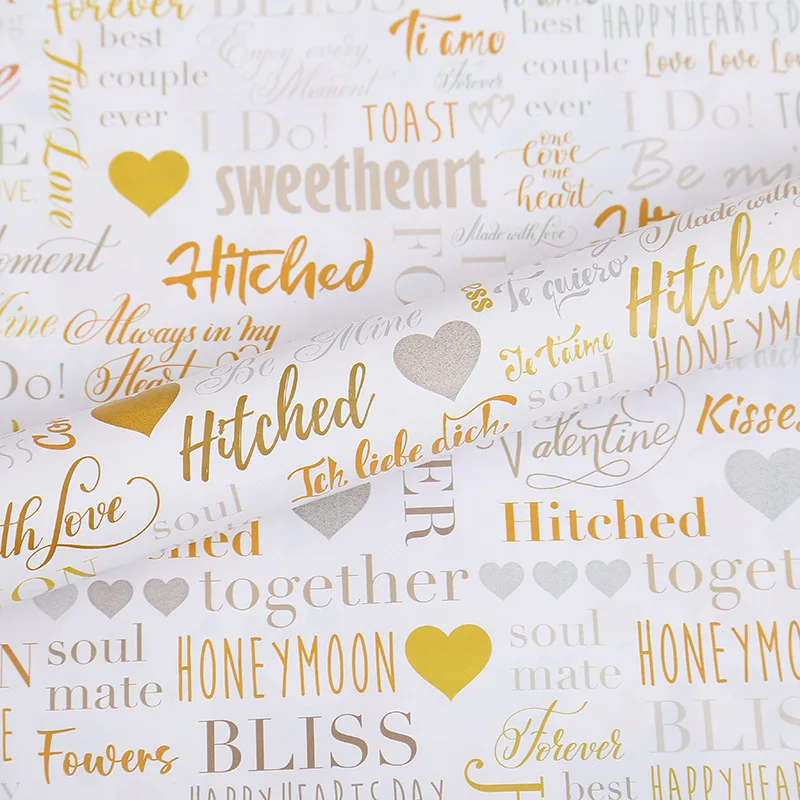 Forever
BLISS
best
couple
ever
True Love
Enjoy every
Moment
Ti amo
Forever
TOAST
I Do!
best
couple
ever
HAPPY HEARTS D
Love Love Lov
I Do!
TO
LOVE.
sweetheart
one
love
one
heart
Be mi
Made with love
Moment
Hitched
Made with
Te quiero
Hitched
Mine
Always in my
Heart
Do!
Be Mine
Je t'aime
soul
HONEYM
Hitched
Ich liebe dich
Valentine
Kisses
th Love
soul
hed
ER
Hitched
ON
together
toget
N
soul
mate
HONEYMOON
soul
mate
HONEYMOO
E
Fowers
BLISS
Forever
BLIS
HAPPY HEARTS DAY
best
HAPPY HEAR